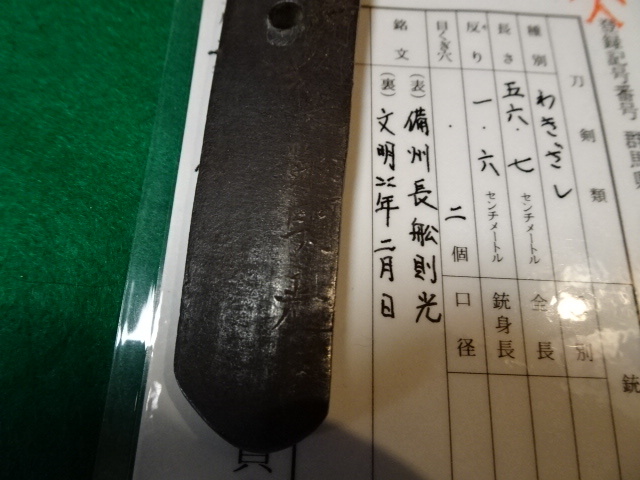 登録記号番号 群馬県
刀剣類
種別 わきざし
長さ 五六・七 センチメートル
反り 一・六 センチメートル
目くぎ穴 二個
銘文 (表) 備州長舩則光
(裏) 文明二二年二月日
別
全長
銃身長
口径
銃